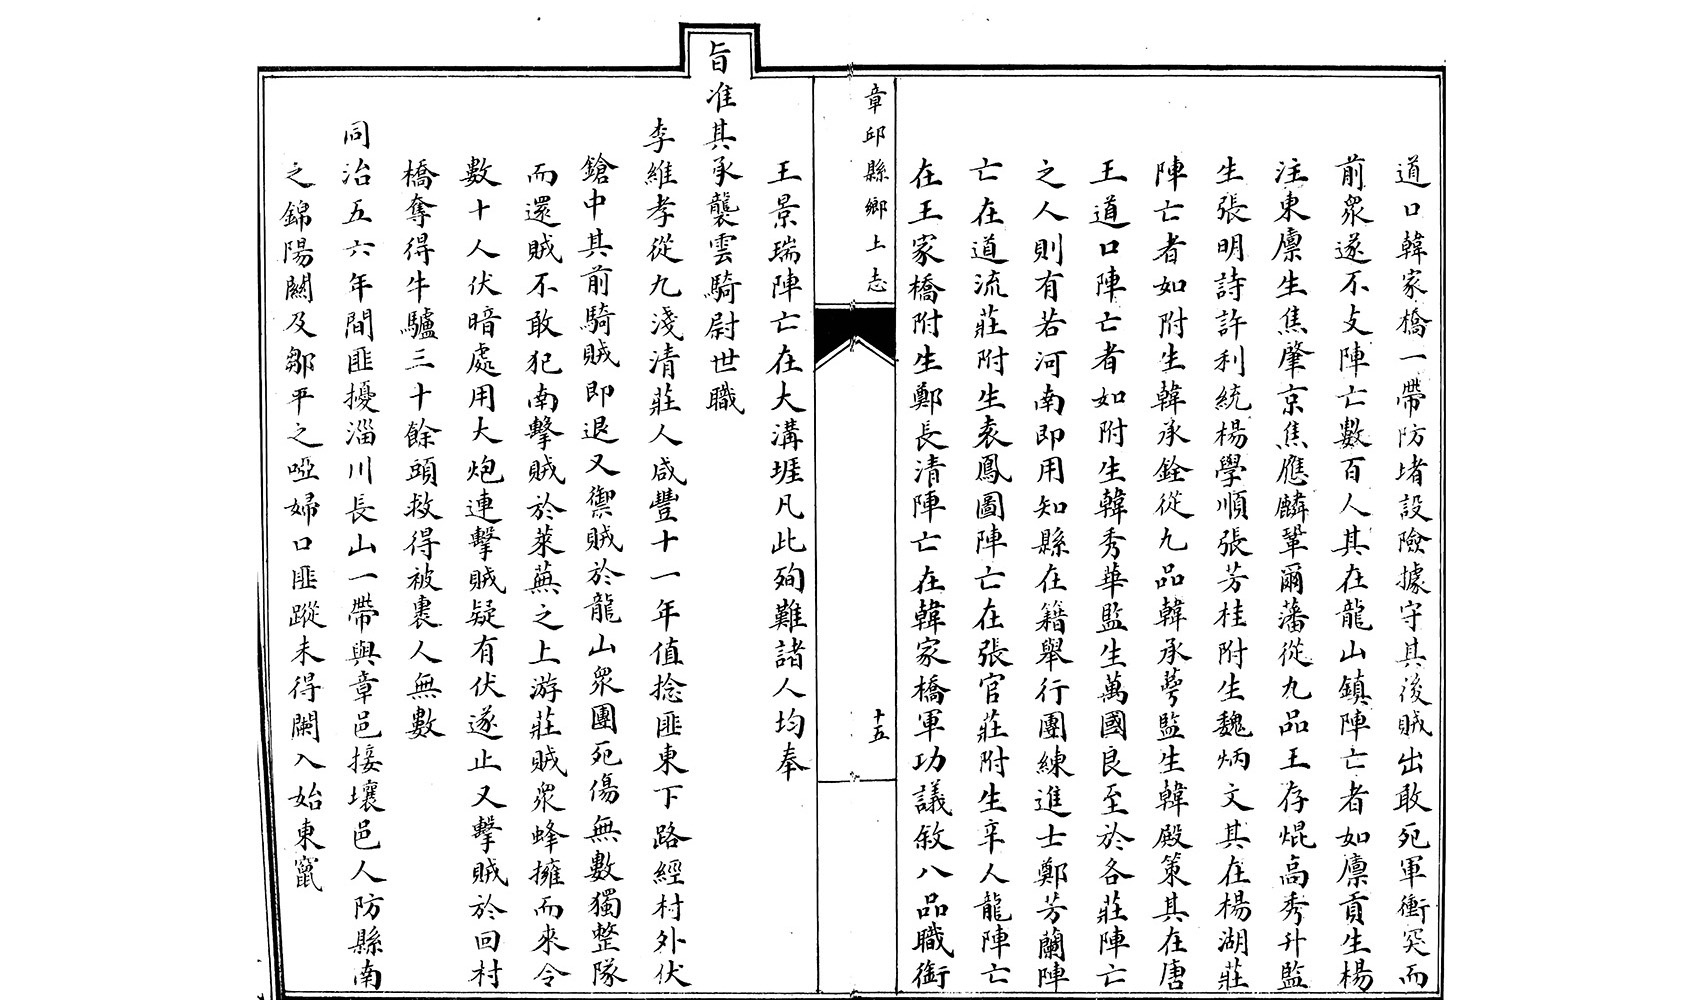 道口韓家橋一帶防堵設險據守其後賊出敢死軍衝突而
前衆遂不支陣亡數百人其在龍山鎮陣亡者如廪貢生楊
注東廪生焦肇京焦應麟鞏爾藩從九品王存焜高秀升監
生張明詩許利統楊學順張芳桂附生魏炳文其在楊湖莊
陣亡者如附生韓承銓從九品韓承蕚監生韓殿策其在唐
王道口陣亡者如附生韓秀華監生萬國良至於各莊陣亡
之人則有若河南即用知縣在籍舉行團練進士鄭芳蘭陣
亡在道流莊附生袁鳳圖陣亡在張官莊附生辛人龍陣亡
在王家橋附生鄭長清陣亡在韓家橋軍功議敘八品職銜
章邱縣鄉土志
十五
王景瑞陣亡在大溝堐凡此殉難諸人均奉
旨准其承襲雲騎尉世職
李維孝從九淺清莊人咸豐十一年值捻匪東下路經村外伏
鎗中其前騎賊即退又禦賊於龍山衆團死傷無數獨整隊
而還賊不敢犯南擊賊於萊蕪之上游莊賊衆蜂擁而來令
數十人伏暗處用大炮連擊賊疑有伏遂止又擊賊於回村
橋奪得牛驢三十餘頭救得被裹人無數
同治五六年間匪擾淄川長山一帶與章邑接壤邑人防縣南
之錦陽關及鄒平之啞婦口匪蹤未得闌入始東竄